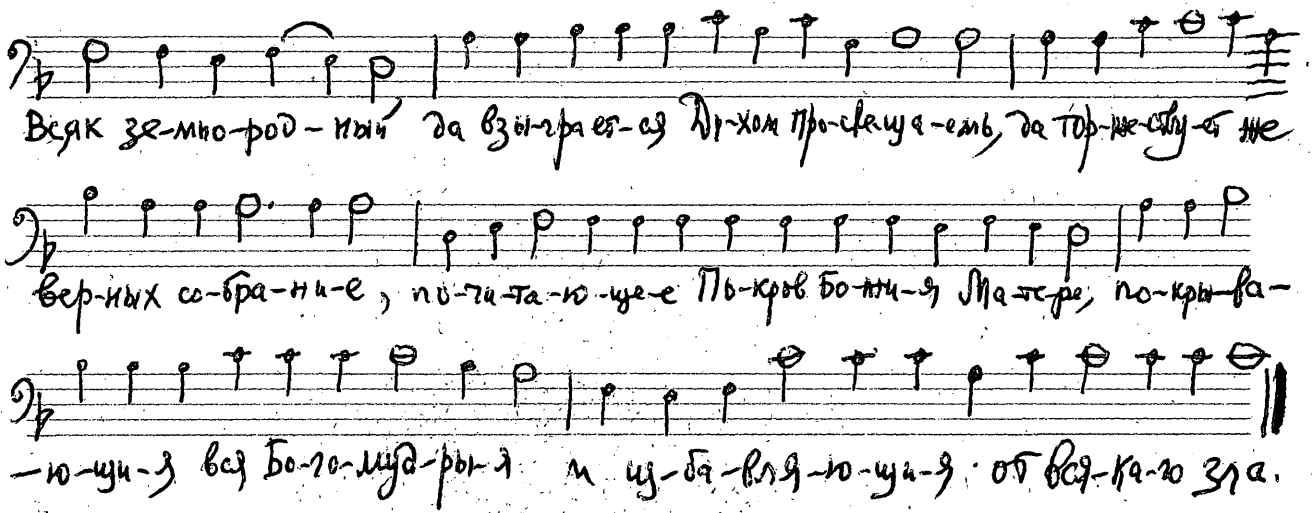 Всяк зе-мно-род-ный да взы-грает-ся Ду-хом про-свеща-емь, да тор-же-ству-ет же
вер-ных со-бра-ни-е, по-чи-та-ю-ще-е По-кров Бо-жи-я Ма-те-ре, по-кры-ва-
-ю-щи-я вся Бо-го-муд-ры-я и из-ба-вля-ю-щи-я от вся-ка-го зла.